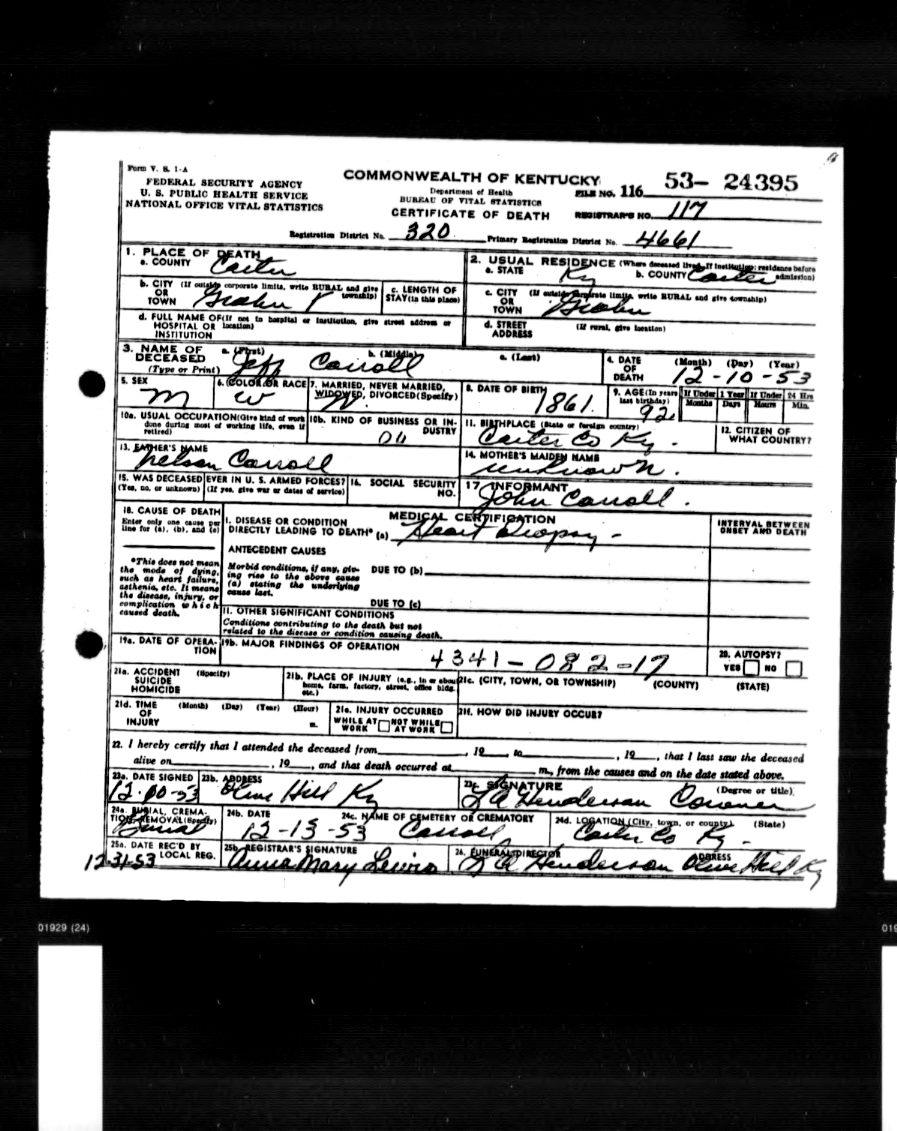 Form V. S. 1-A
FEDERAL SECURITY AGENCY
U. S. PUBLIC HEALTH SERVICE
NATIONAL OFFICE VITAL STATISTICS
COMMONWEALTH OF KENTUCKY
Department of Health
BUREAU OF VITAL STATISTICS
CERTIFICATE OF DEATH
FILE NO. 116 53- 24395
REGISTRAR'S NO. 117
Registration District No. 320 Primary Registration District No. 4661
1. PLACE OF DEATH
a. COUNTY Carter
2. USUAL RESIDENCE (Where deceased lived. If institution: residence before admission)
a. STATE Ky b. COUNTY Carter
b. CITY (If outside corporate limits, write RURAL and give township)
OR
TOWN Grahn
c. LENGTH OF STAY (in this place)
c. CITY (If outside corporate limits, write RURAL and give township)
OR
TOWN Grahn
d. FULL NAME OF (If not in hospital or institution, give street address or location)
HOSPITAL OR
INSTITUTION
d. STREET ADDRESS (If rural, give location)
3. NAME OF DECEASED (Type or Print) a. (First) b. (Middle) c. (Last)
Jeff Carroll
4. DATE OF DEATH (Month) (Day) (Year)
12-10-53
5. SEX M
6. COLOR OR RACE W
7. MARRIED, NEVER MARRIED, WIDOWED, DIVORCED (Specify) W.
8. DATE OF BIRTH 1861.
9. AGE (In years last birthday) 92
If Under 1 Year Months Days
If Under 24 Hrs Hours Min.
10a. USUAL OCCUPATION (Give kind of work done during most of working life, even if retired)
10b. KIND OF BUSINESS OR INDUSTRY
11. BIRTHPLACE (State or foreign country)
Carter Co Ky.
12. CITIZEN OF WHAT COUNTRY?
13. FATHER'S NAME
Nelson Carroll
14. MOTHER'S MAIDEN NAME
unknown.
15. WAS DECEASED EVER IN U. S. ARMED FORCES?
(Yes, no, or unknown) (If yes, give war or dates of service)
16. SOCIAL SECURITY NO.
17. INFORMANT
John Carroll.
18. CAUSE OF DEATH
Enter only one cause per line for (a), (b), and (c)
MEDICAL CERTIFICATION
INTERVAL BETWEEN ONSET AND DEATH
I. DISEASE OR CONDITION
DIRECTLY LEADING TO DEATH* (a) Heart Dropsy -
*This does not mean the mode of dying, such as heart failure, asthenia, etc. It means the disease, injury, or complication which caused death.
ANTECEDENT CAUSES
Morbid conditions, if any, giving rise to the above cause (a) stating the underlying cause last.
DUE TO (b)
DUE TO (c)
11. OTHER SIGNIFICANT CONDITIONS
Conditions contributing to the death but not related to the disease or condition causing death.
19a. DATE OF OPERATION
19b. MAJOR FINDINGS OF OPERATION
4341-082-17
20. AUTOPSY?
YES NO
21a. ACCIDENT (Specify)
SUICIDE
HOMICIDE
21b. PLACE OF INJURY (e.g., in or about home, farm, factory, street, office bldg. etc.)
21c. (CITY, TOWN, OR TOWNSHIP) (COUNTY) (STATE)
21d. TIME OF INJURY (Month) (Day) (Year) (Hour) m.
21e. INJURY OCCURRED
WHILE AT WORK NOT WHILE AT WORK
21f. HOW DID INJURY OCCUR?
22. I hereby certify that I attended the deceased from , 19 , to , 19 , that I last saw the deceased
alive on , 19 , and that death occurred at m., from the causes and on the date stated above.
23a. DATE SIGNED
23b. ADDRESS
Olive Hill Ky
23c. SIGNATURE (Degree or title)
Henderson Coroner
24a. BURIAL, CREMATION, REMOVAL (Specify)
Burial
24b. DATE
12-13-53
24c. NAME OF CEMETERY OR CREMATORY
Carroll
24d. LOCATION (City, town, or county) (State)
Carter Co Ky.
25a. DATE REC'D BY LOCAL REG.
12-31-53
25b. REGISTRAR'S SIGNATURE
Anna Mary Lewis
26. FUNERAL DIRECTOR ADDRESS
Henderson Olive Hill Ky
01929 (24)
019